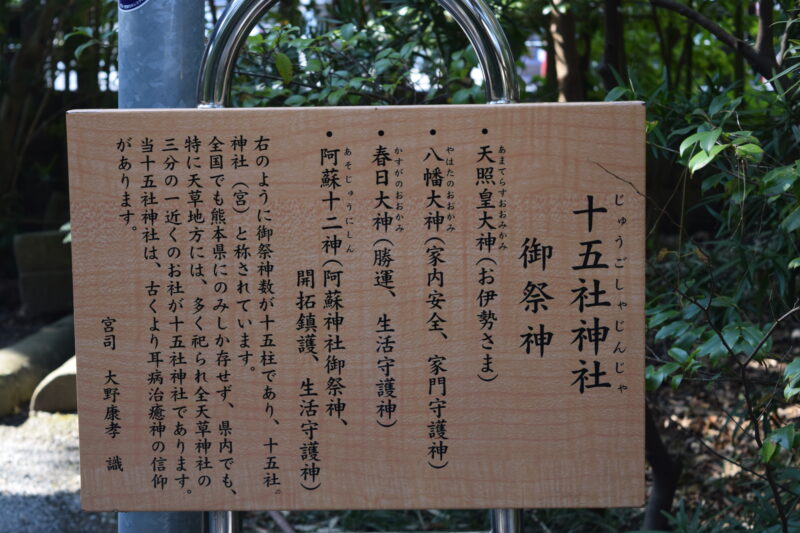 じゅうごしゃじんじゃ
十五社神社
御祭神
あまてらすおおみかみ
• 天照皇大神(お伊勢さま)
やはたのおおかみ
• 八幡大神(家内安全、家門守護神)
かすがのおおかみ
• 春日大神(勝運、生活守護神)
あそじゅうにしん
• 阿蘇十二神(阿蘇神社御祭神、
開拓鎮護、生活守護神)
右のように御祭神数が十五柱であり、十五社。
神社(宮)と称されています。
全国でも熊本県にのみしか存せず、県内でも、
特に天草地方には、多く祀られ全天草神社の
三分の一近くのお社が十五社神社であります。
当十五社神社は、古くより耳病治癒神の信仰
があります。
宮司 大野康孝 識